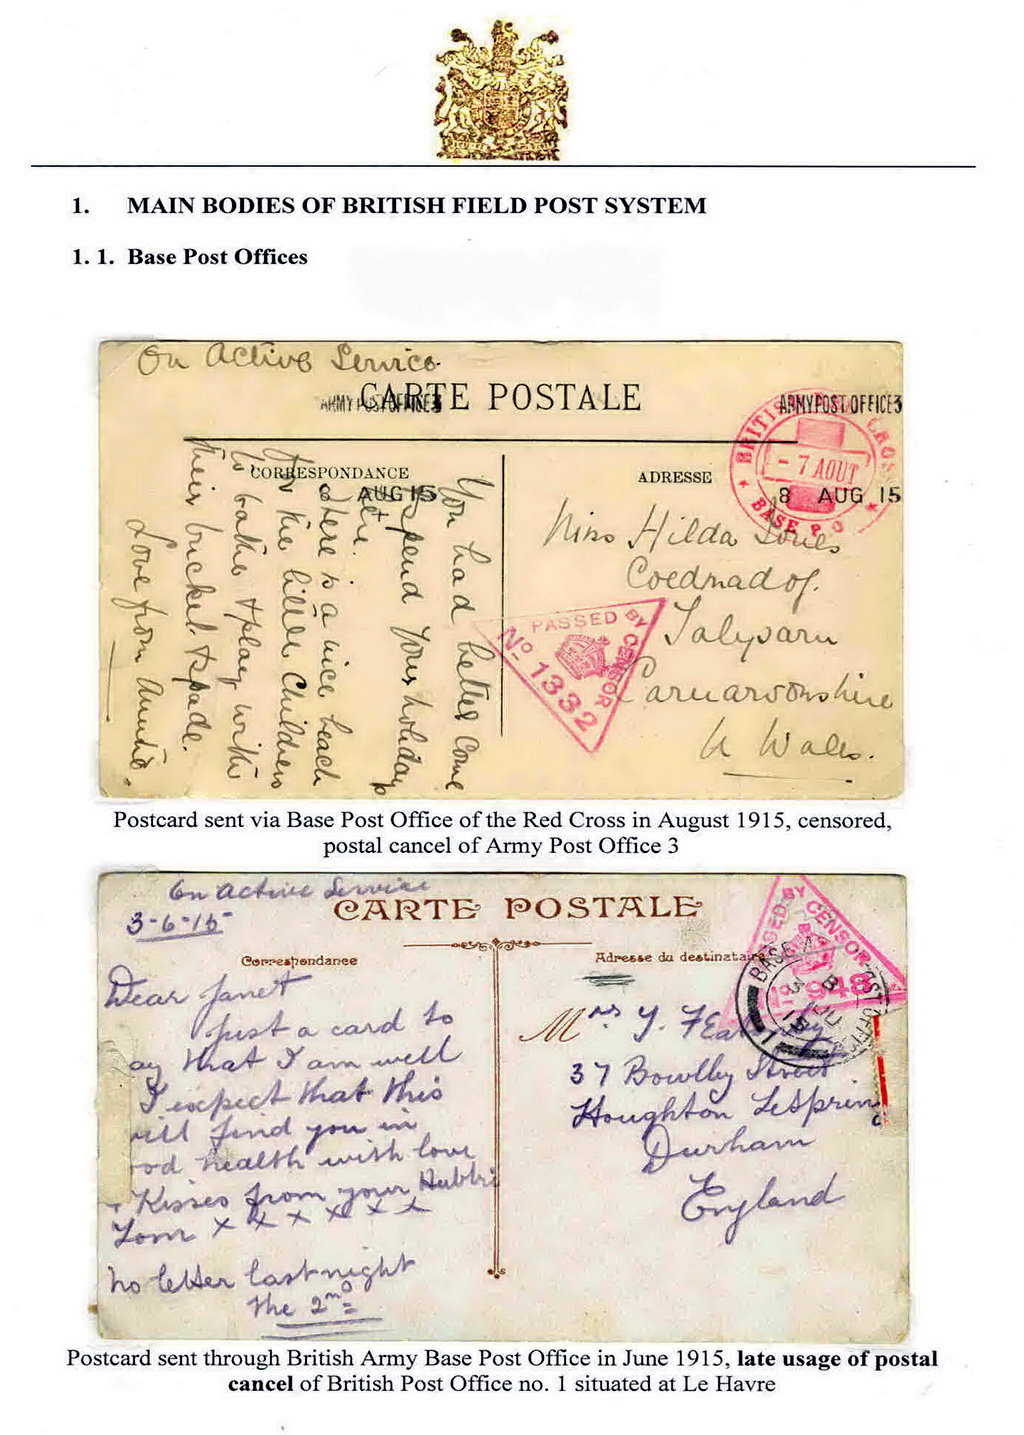 1. MAIN BODIES OF BRITISH FIELD POST SYSTEM
1. 1. Base Post Offices
On Active Service
CARTE POSTALE
ARMY POST OFFICE 3
ARMY POST OFFICE 3
CORRESPONDANCE
AUG 15
ADRESSE
BRITISH CROSS
- 7 AOUT
BASE P.O
8 AUG 15
You had better come
& spend your holiday
here.
There is a nice beach
for the little children
to bathe & play with
their bucket & spade.
Love from Auntie.
Miss Hilda Jones
Coedmadog.
Talysarn
Carnarvonshire
N Wales.
PASSED BY CENSOR
No 1332
Postcard sent via Base Post Office of the Red Cross in August 1915, censored,
postal cancel of Army Post Office 3
On Active Service
3-6-15
CARTE POSTALE
Correspondance
Adresse du destinataire
Dear Janet
Just a card to
ay that I am well
I expect that this
will find you in
ood health with love
+ Kisses from your Hubbi
Tom x x x x x x
No letter last night
the 2nd
Mrs J.
37 Bowlby Street
Houghton LeSpring
Durham
England
PASSED BY CENSOR
948
BASE
Postcard sent through British Army Base Post Office in June 1915, late usage of postal
cancel of British Post Office no. 1 situated at Le Havre